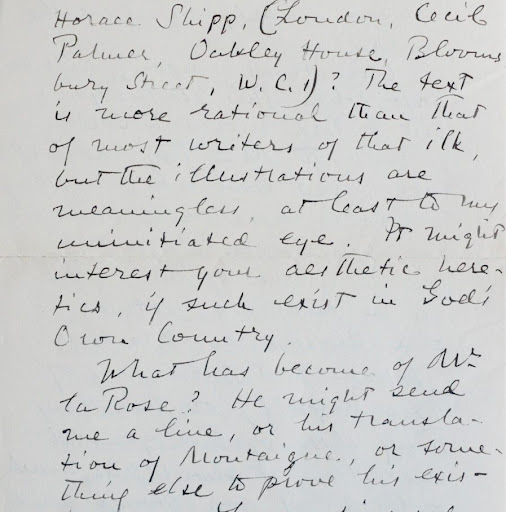 Horace Shipp, (London, Cecil
Palmer, Oakley House, Blooms
bury Street, W.C.1)? The text
is more rational than that
of most writers of that ilk,
but the illustrations are
meaningless, at least to my
uninitiated eye. It might
interest your aesthetic here-
tics, if such exist in God's
Own Country.
What has become of Mr
la Rose? He might send
me a line, or his transla-
tion of Montaigne, or some-
thing else to prove his exis-